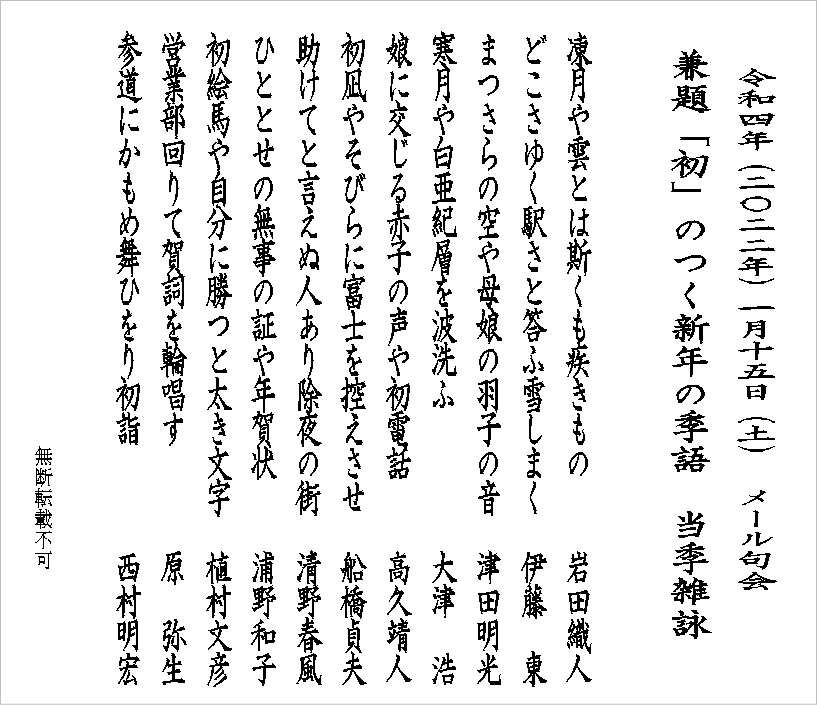 令和四年（二〇二二年）一月十五日（土）　メール句会
兼題「初」のつく新年の季語　当季雑詠
凍月や雲とは斯くも疾きもの　岩田織人
どこさゆく駅さと答ふ雪しまく　伊藤　東
まつさらの空や母娘の羽子の音　津田明光
寒月や白亜紀層を波洗ふ　大津　浩
娘に交じる赤子の声や初電話　高久靖人
初凪やそびらに富士を控えさせ　船橋貞夫
助けてと言えぬ人あり除夜の街　清野春風
ひととせの無事の証や年賀状　浦野和子
初絵馬や自分に勝つと太き文字　植村文彦
営業部回りて賀詞を輪唱す　原　弥生
参道にかもめ舞ひをり初詣　西村明宏
無断転載不可